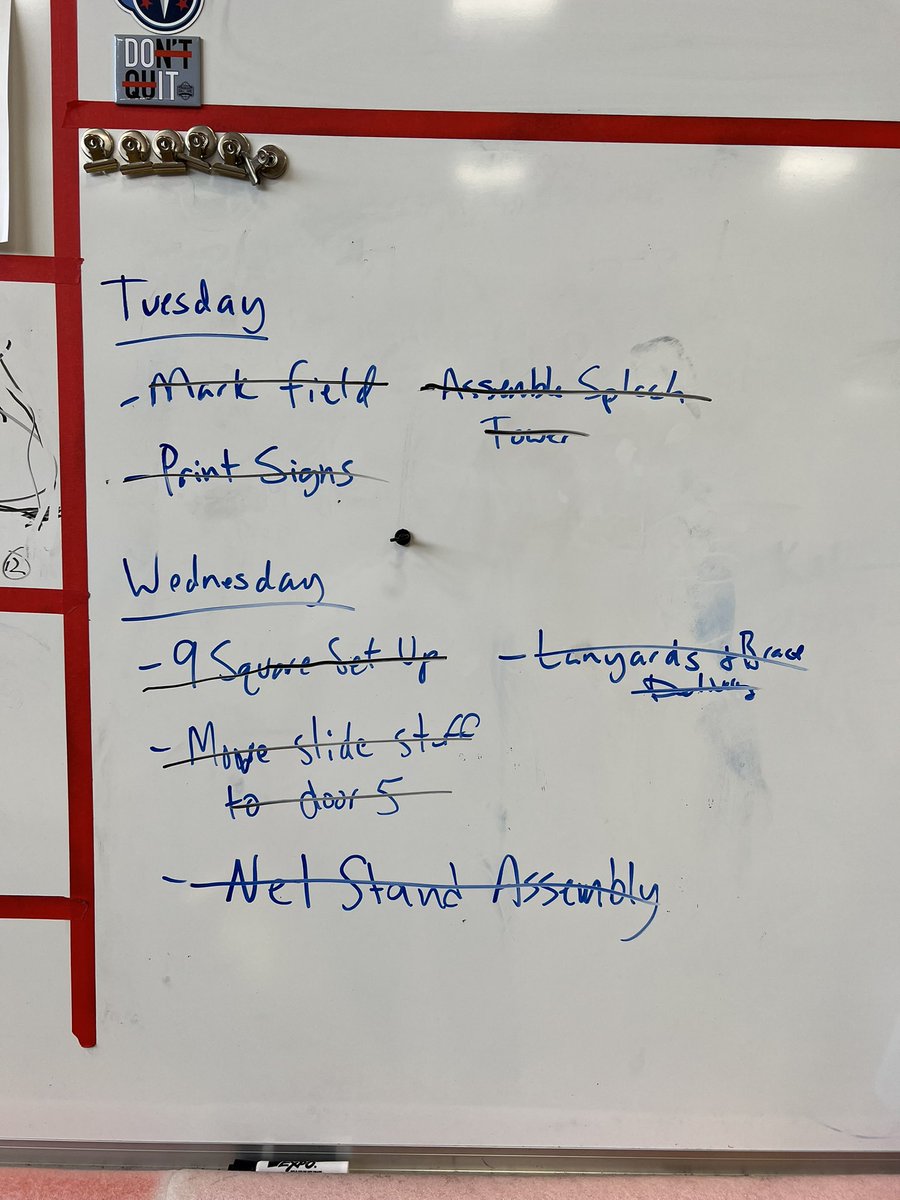 DON'T
QUIT
Tuesday
- Mark field
- Assemble Splash
Tower
- Print Signs
Wednesday
- 9 Square Set Up
- Lanyards & Brace
Delivery
- Move slide stuff
to door 5
- Net Stand Assembly
12
EXPO